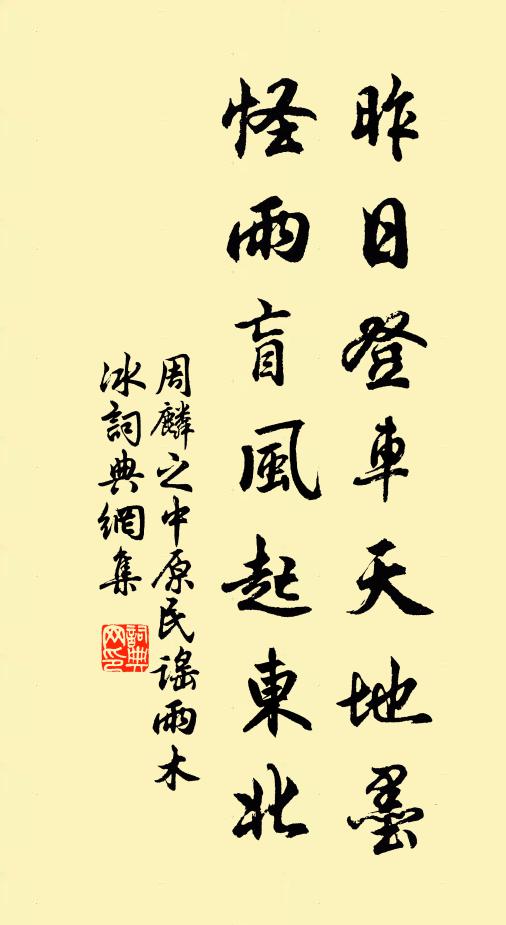 昨日登車天地墨
怪雨盲風起東北
周麟之中原民謠雨木
冰詞典網集
詞典網印